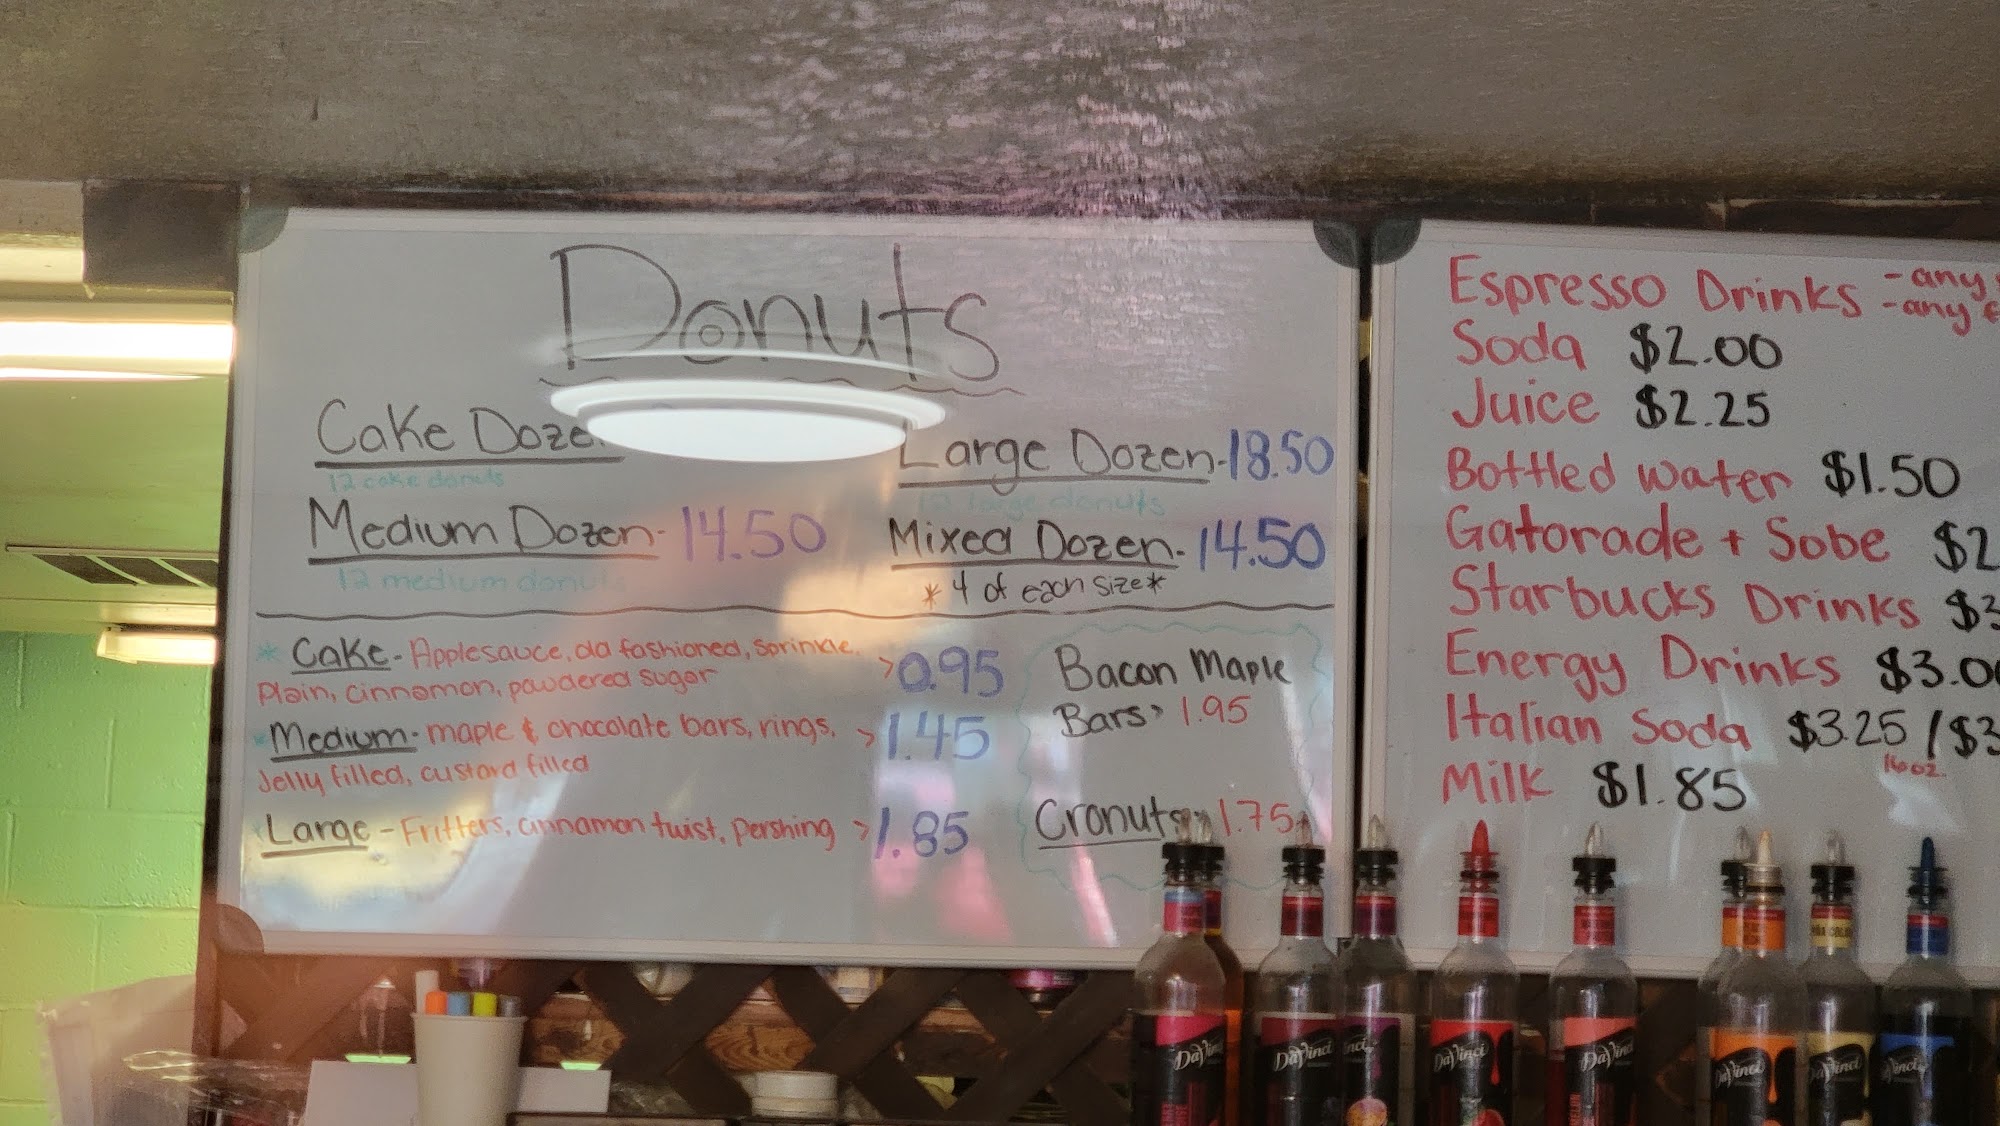 Donuts
Cake
12 cake donuts
Medium Dozen- 14.50
12 medium donuts
Large Dozen-18.50
12 large donuts
Mixed Dozen-14.50
*4 of each size*
* Cake- Applesauce, old fashioned, Sprinkle, > 0.95
Plain, cinnamon, powdered sugar
Medium- maple & chocolate bars, rings, > 1.45
Jelly filled, custard filled
Large- Fritters, cinnamon twist, Pershing > 1.85
Bacon Maple
Bars> 1.95
Cronuts 1.75
Espresso Drinks -any
-any
Soda $2.00
Juice $2.25
Bottled water $1.50
Gatorade + Sobe $2
Starbucks Drinks $3
Energy Drinks $3.0
Italian Soda $3.25 / $3
16oz.
Milk $1.85
DaVinci
DaVinci
DaVinci
DaVinci
DaVinci
DaVinci